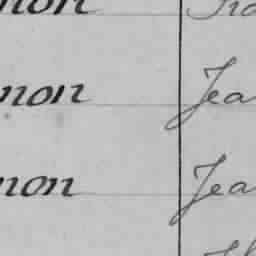 non
non Jea
non Jea